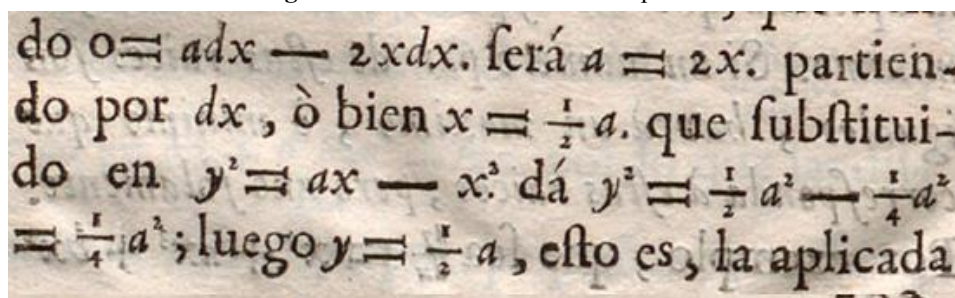 do 0 = adx — 2xdx. ſerá a = 2x. partien-
do por dx, ò bien x = ½ a. que ſubſtitui-
do en y² = ax — x². dá y² = ½ a² — ¼ a²
= ¼ a²; luego y = ½ a, eſto es, la aplicada